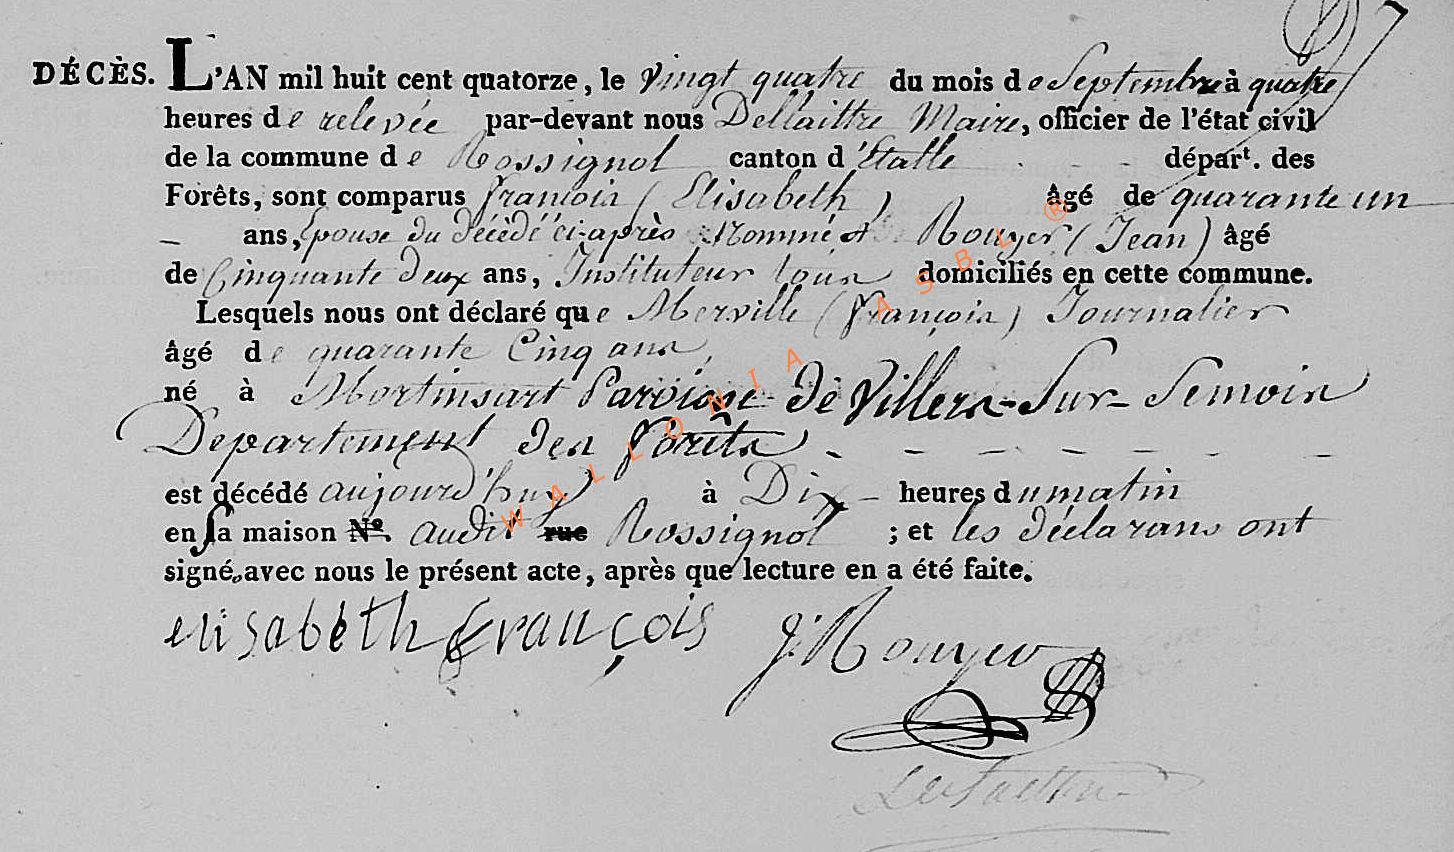 DÉCÈS. L'AN mil huit cent quatorze, le vingt quatre du mois de Septembre à quatre
heures de relevée par-devant nous Dellaittre Maire, officier de l'état civil
de la commune de Rossignol canton d'Etalle - - départ. des
Forêts, sont comparus françois (Elisabeth) âgé de quarante un
ans, Epouse du décédé ci-après Nommé et Rouyer (Jean) âgé
de Cinquante deux ans, Instituteur tous domiciliés en cette commune.
Lesquels nous ont déclaré que Merville (françois) Journalier
âgé de quarante Cinq ans,
né à Mortinsart Paroisse de Villers-Sur-Semois
Departement des forêts - - - - - - -
est décédé aujourd'huy à Dix - heures du matin
en sa maison N°. audit rue Rossignol ; et les déclarans ont
signé avec nous le présent acte, après que lecture en a été faite.
elisabeth françois J: Rouyer
WALLONIA ASBL ®